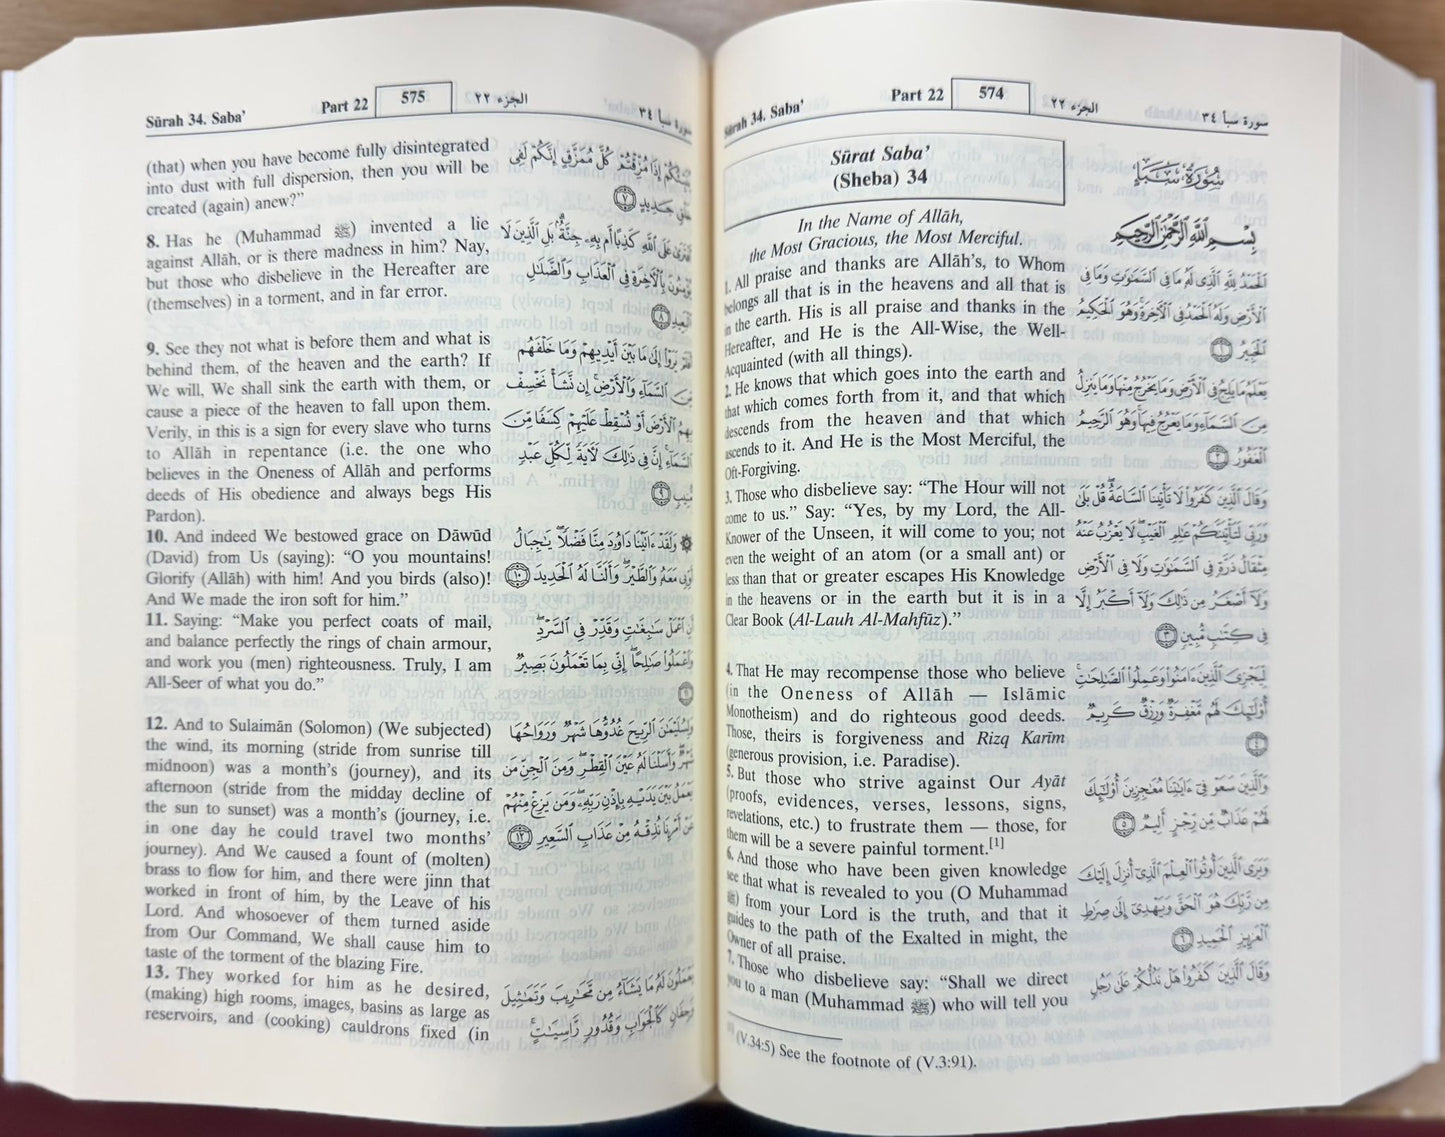 Sūrah 34. Saba’ Part 22 574 الجزء ٢٢ سورة سبأ ٣٤
Sūrat Saba’
(Sheba) 34
In the Name of Allāh,
the Most Gracious, the Most Merciful.
1. All praise and thanks are Allāh’s, to Whom
belongs all that is in the heavens and all that is
in the earth. His is all praise and thanks in the
Hereafter, and He is the All-Wise, the Well-
Acquainted (with all things).
2. He knows that which goes into the earth and
that which comes forth from it, and that which
descends from the heaven and that which
ascends to it. And He is the Most Merciful, the
Oft-Forgiving.
3. Those who disbelieve say: “The Hour will not
come to us.” Say: “Yes, by my Lord, the All-
Knower of the Unseen, it will come to you; not
even the weight of an atom (or a small ant) or
less than that or greater escapes His Knowledge
in the heavens or in the earth but it is in a
Clear Book (Al-Lauh Al-Mahfūz).”
4. That He may recompense those who believe
(in the Oneness of Allāh — Islāmic
Monotheism) and do righteous good deeds.
Those, theirs is forgiveness and Rizq Karīm
(generous provision, i.e. Paradise).
5. But those who strive against Our Ayāt
(proofs, evidences, verses, lessons, signs,
revelations, etc.) to frustrate them — those, for
them will be a severe painful torment.[1]
6. And those who have been given knowledge
see that what is revealed to you (O Muhammad
ﷺ) from your Lord is the truth, and that it
guides to the path of the Exalted in might, the
Owner of all praise.
7. Those who disbelieve say: “Shall we direct
you to a man (Muhammad ﷺ) who will tell you
سُورَةُ سَبَإٍ
بِسْمِ اللَّهِ الرَّحْمَٰنِ الرَّحِيمِ
الْحَمْدُ لِلَّهِ الَّذِي لَهُ مَا فِي السَّمَاوَاتِ وَمَا فِي
الْأَرْضِ وَلَهُ الْحَمْدُ فِي الْآخِرَةِ وَهُوَ الْحَكِيمُ
الْخَبِيرُ ١
يَعْلَمُ مَا يَلِجُ فِي الْأَرْضِ وَمَا يَخْرُجُ مِنْهَا وَمَا يَنزِلُ
مِنَ السَّمَاءِ وَمَا يَعْرُجُ فِيهَا وَهُوَ الرَّحِيمُ
الْغَفُورُ ٢
وَقَالَ الَّذِينَ كَفَرُوا لَا تَأْتِينَا السَّاعَةُ قُلْ بَلَىٰ
وَرَبِّي لَتَأْتِيَنَّكُمْ عَالِمِ الْغَيْبِ لَا يَعْزُبُ عَنْهُ
مِثْقَالُ ذَرَّةٍ فِي السَّمَاوَاتِ وَلَا فِي الْأَرْضِ
وَلَا أَصْغَرُ مِن ذَٰلِكَ وَلَا أَكْبَرُ إِلَّا
فِي كِتَابٍ مُّبِينٍ ٣
لِّيَجْزِيَ الَّذِينَ آمَنُوا وَعَمِلُوا الصَّالِحَاتِ
أُولَٰئِكَ لَهُم مَّغْفِرَةٌ وَرِزْقٌ كَرِيمٌ
٤
وَالَّذِينَ سَعَوْ فِي آيَاتِنَا مُعَاجِزِينَ أُولَٰئِكَ
لَهُمْ عَذَابٌ مِّن رِّجْزٍ أَلِيمٌ ٥
وَيَرَى الَّذِينَ أُوتُوا الْعِلْمَ الَّذِي أُنزِلَ إِلَيْكَ
مِن رَّبِّكَ هُوَ الْحَقَّ وَيَهْدِي إِلَىٰ صِرَاطِ
الْعَزِيزِ الْحَمِيدِ ٦
وَقَالَ الَّذِينَ كَفَرُوا هَلْ نَدُلُّكُمْ عَلَىٰ رَجُلٍ
(V.34:5) See the footnote of (V.3:91).
Sūrah 34. Saba’ Part 22 575 الجزء ٢٢ سورة سبأ ٣٤
(that) when you have become fully disintegrated
into dust with full dispersion, then you will be
created (again) anew?”
8. Has he (Muhammad ﷺ) invented a lie
against Allāh, or is there madness in him? Nay,
but those who disbelieve in the Hereafter are
(themselves) in a torment, and in far error.
9. See they not what is before them and what is
behind them, of the heaven and the earth? If
We will, We shall sink the earth with them, or
cause a piece of the heaven to fall upon them.
Verily, in this is a sign for every slave who turns
to Allāh in repentance (i.e. the one who
believes in the Oneness of Allāh and performs
deeds of His obedience and always begs His
Pardon).
10. And indeed We bestowed grace on Dāwūd
(David) from Us (saying): “O you mountains!
Glorify (Allāh) with him! And you birds (also)!
And We made the iron soft for him.”
11. Saying: “Make you perfect coats of mail,
and balance perfectly the rings of chain armour,
and work you (men) righteousness. Truly, I am
All-Seer of what you do.”
12. And to Sulaimān (Solomon) (We subjected)
the wind, its morning (stride from sunrise till
midnoon) was a month’s (journey), and its
afternoon (stride from the midday decline of
the sun to sunset) was a month’s (journey, i.e.
in one day he could travel two months’
journey). And We caused a fount of (molten)
brass to flow for him, and there were jinn that
worked in front of him, by the Leave of his
Lord. And whosoever of them turned aside
from Our Command, We shall cause him to
taste of the torment of the blazing Fire.
13. They worked for him as he desired,
(making) high rooms, images, basins as large as
reservoirs, and (cooking) cauldrons fixed (in
إِذَا مُزِّقْتُمْ كُلَّ مُمَزَّقٍ إِنَّكُمْ لَفِي
جَدِيدٍ ٧
عَلَى اللَّهِ كَذِبًا أَم بِهِ جِنَّةٌ بَلِ الَّذِينَ لَا
يُؤْمِنُونَ بِالْآخِرَةِ فِي الْعَذَابِ وَالضَّلَالِ
الْبَعِيدِ ٨
يَرَوْا إِلَىٰ مَا بَيْنَ أَيْدِيهِمْ وَمَا خَلْفَهُم
مِّنَ السَّمَاءِ وَالْأَرْضِ إِن نَّشَأْ نَخْسِفْ
بِهِمُ الْأَرْضَ أَوْ نُسْقِطْ عَلَيْهِمْ كِسَفًا مِّنَ
السَّمَاءِ إِنَّ فِي ذَٰلِكَ لَآيَةً لِّكُلِّ عَبْدٍ
مُّنِيبٍ ٩
وَلَقَدْ آتَيْنَا دَاوُودَ مِنَّا فَضْلًا يَا جِبَالُ
أَوِّبِي مَعَهُ وَالطَّيْرَ وَأَلَنَّا لَهُ الْحَدِيدَ ١٠
أَنِ اعْمَلْ سَابِغَاتٍ وَقَدِّرْ فِي السَّرْدِ
وَاعْمَلُوا صَالِحًا إِنِّي بِمَا تَعْمَلُونَ بَصِيرٌ
١١
وَلِسُلَيْمَانَ الرِّيحَ غُدُوُّهَا شَهْرٌ وَرَوَاحُهَا
شَهْرٌ وَأَسَلْنَا لَهُ عَيْنَ الْقِطْرِ وَمِنَ الْجِنِّ مَن
يَعْمَلُ بَيْنَ يَدَيْهِ بِإِذْنِ رَبِّهِ وَمَن يَزِغْ مِنْهُمْ
عَنْ أَمْرِنَا نُذِقْهُ مِنْ عَذَابِ السَّعِيرِ ١٢
يَعْمَلُونَ لَهُ مَا يَشَاءُ مِن مَّحَارِيبَ وَتَمَاثِيلَ
وَجِفَانٍ كَالْجَوَابِ وَقُدُورٍ رَّاسِيَاتٍ